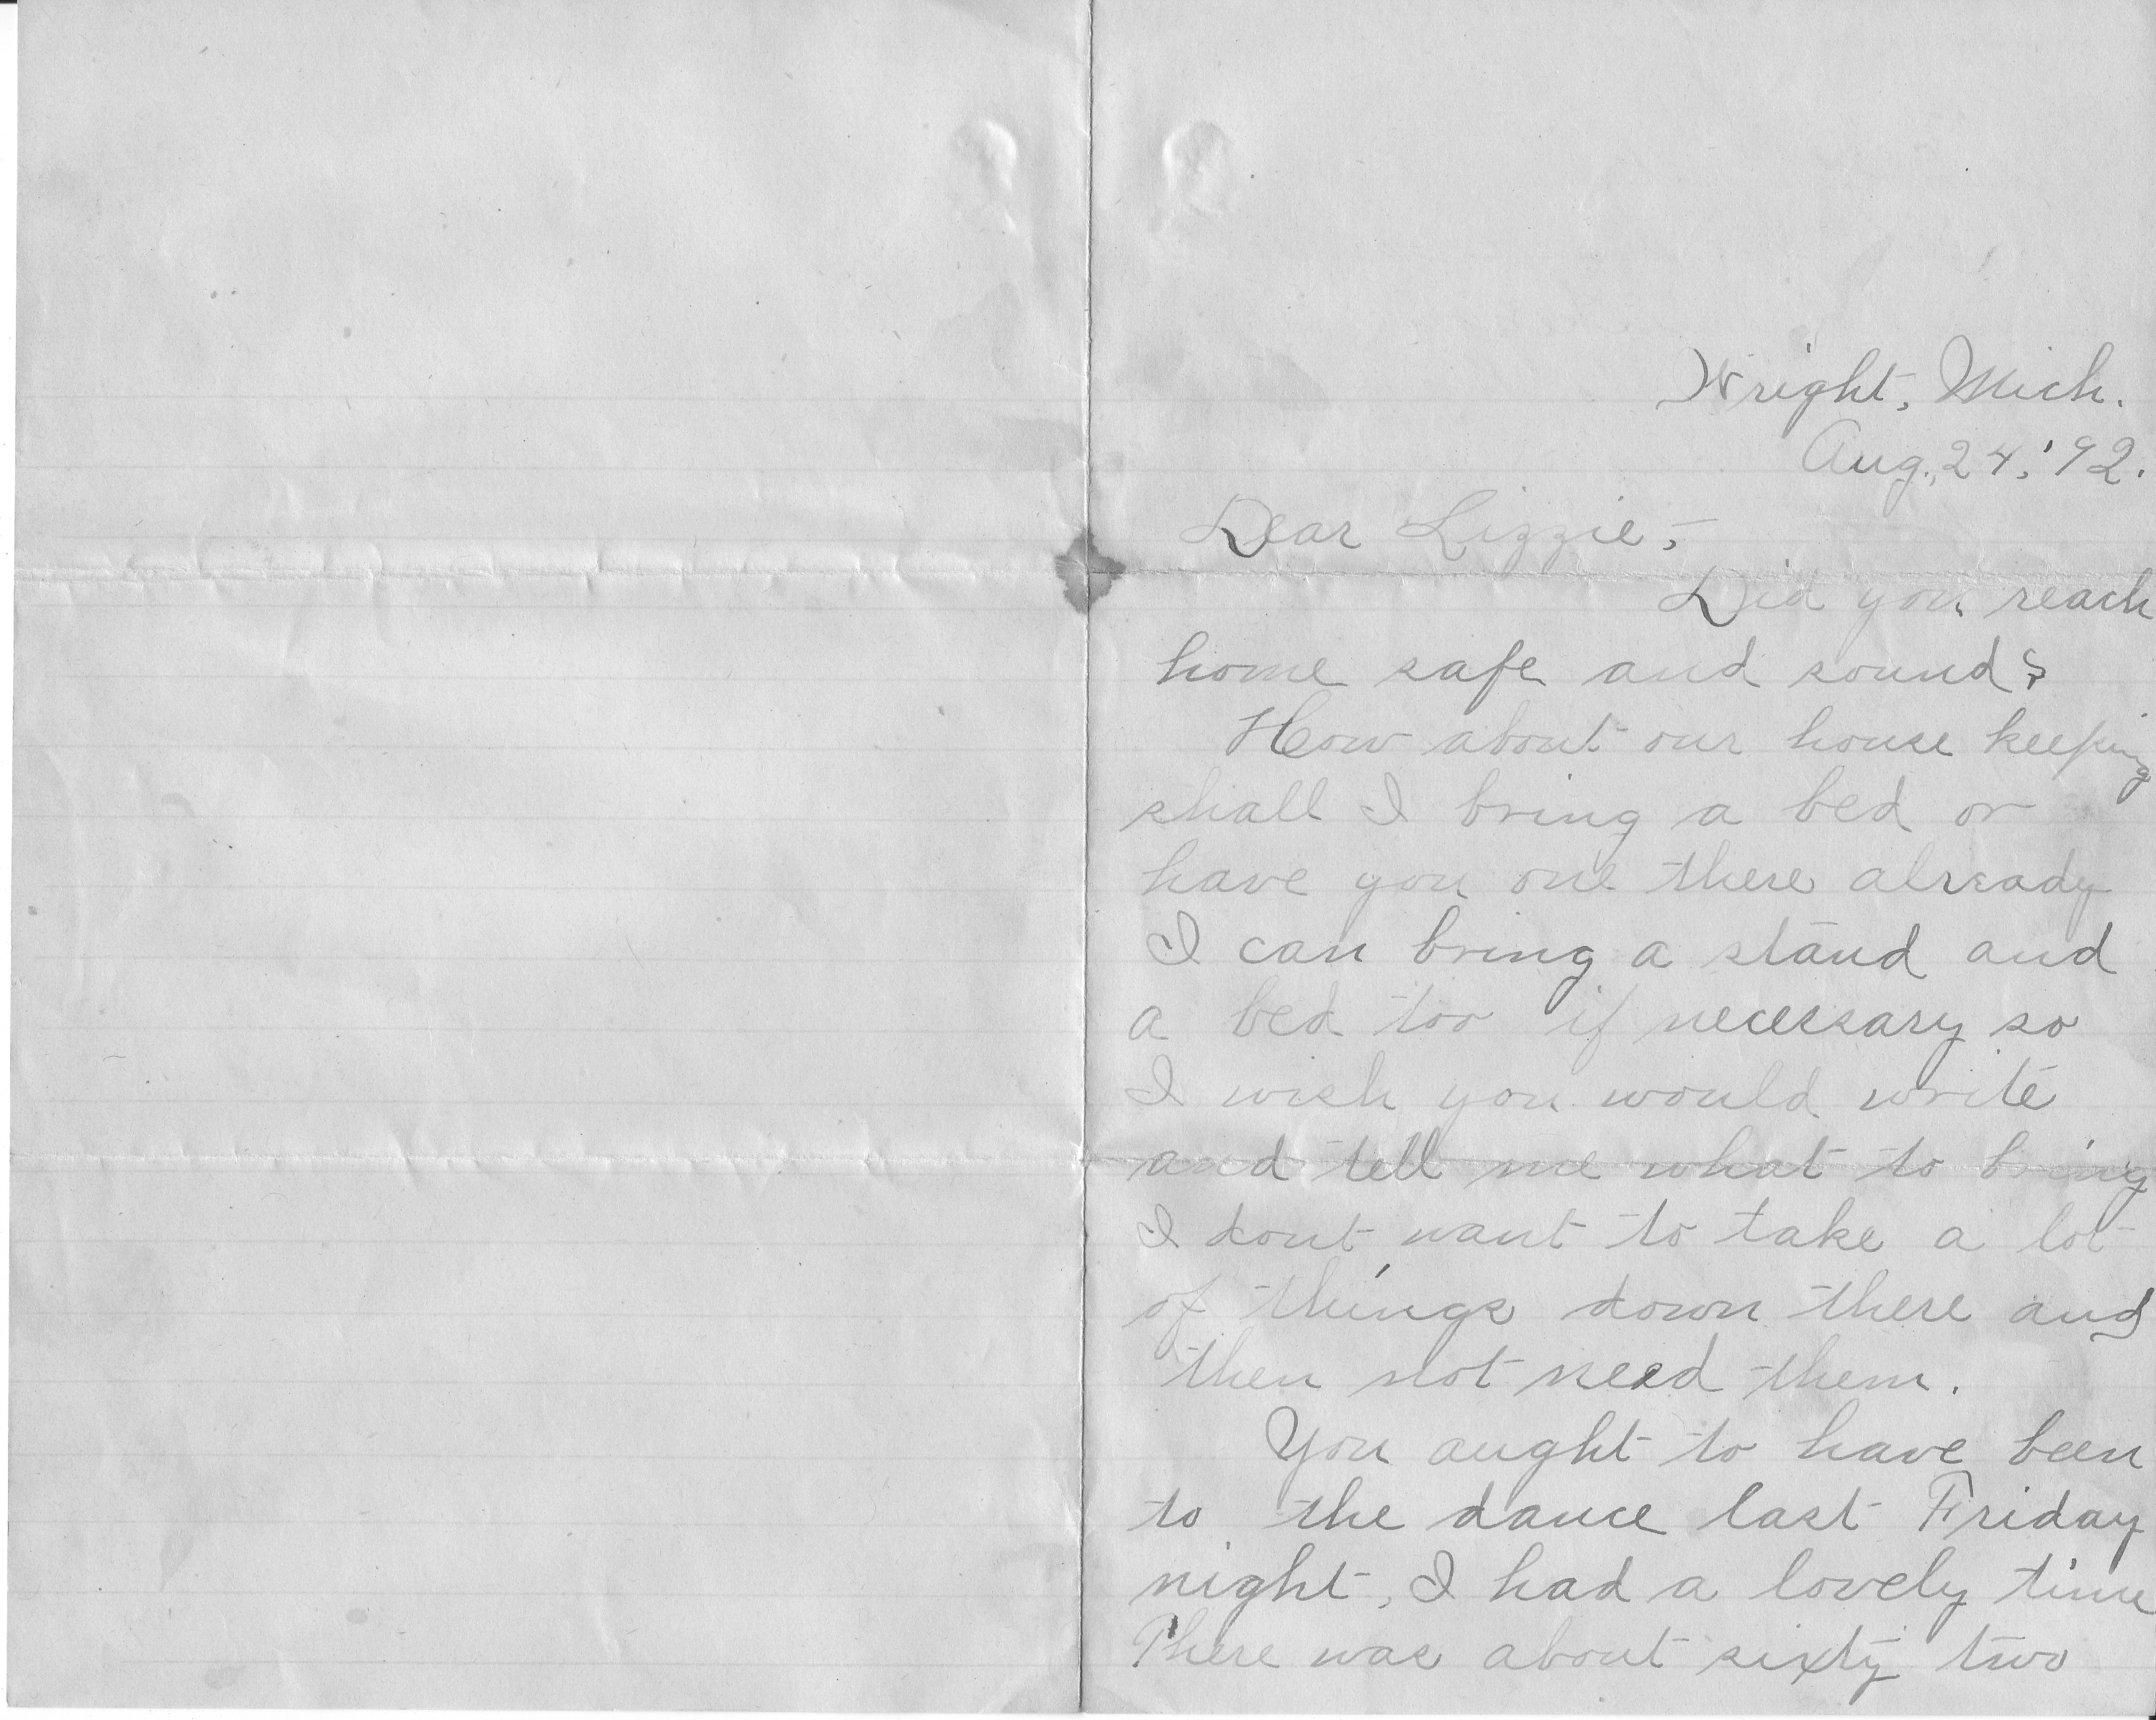 Wright, Mich.
Aug., 24, '92.
Dear Lizzie,-
Did you reach
home safe and sound?
How about our house keeping
shall I bring a bed or
have you one there already
I can bring a stand and
a bed too if necessary so
I wish you would write
and tell me what to bring
I dont want to take a lot
of things down there and
then not need them.
You aught to have been
to the dance last Friday
night, I had a lovely time
There was about sixty two